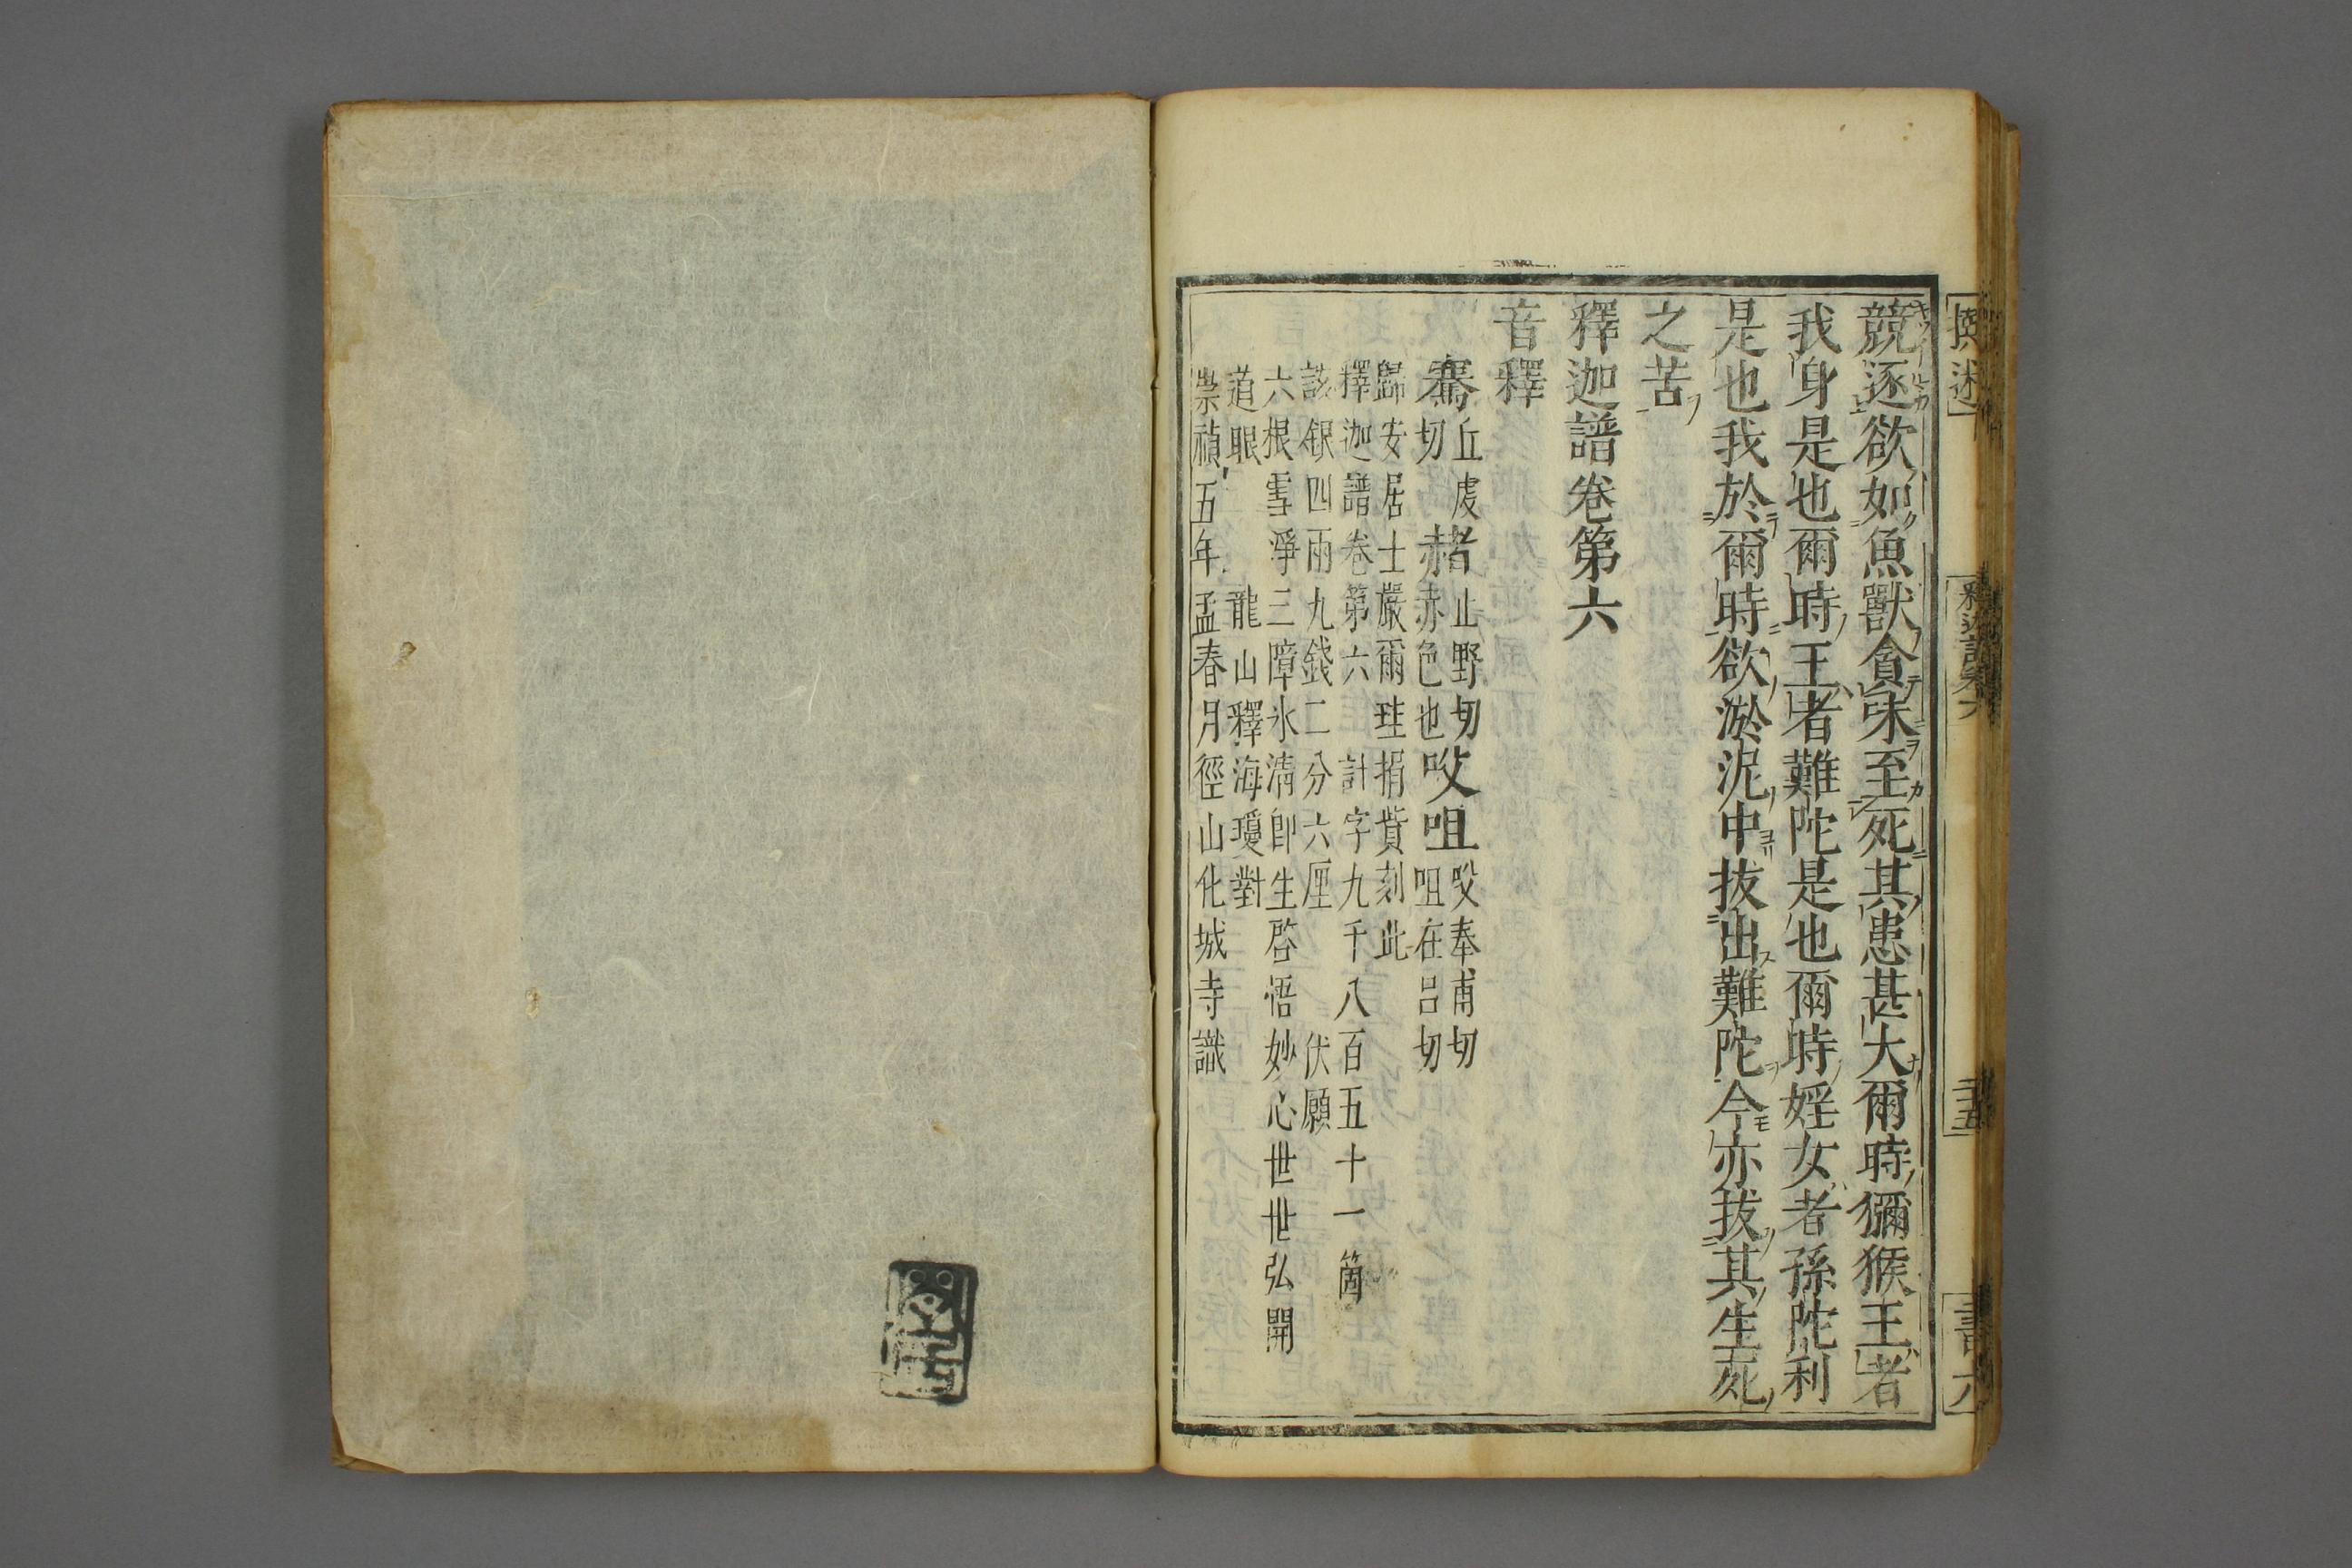 競逐欲如魚獸貪味至死其患甚大爾時獼猴王者
我身是也爾時王者難陀是也爾時婬女者孫陀利
是也我於爾時欲淤泥中拔出難陀今亦拔其生死
之苦
釋迦譜卷第六
音釋
騫丘虔切 赭止野切赤色也 㕮咀㕮奉甫切咀在呂切
歸安居士嚴爾珪捐貲刻此
釋迦譜卷第六 計字九千八百五十一箇
該銀四兩九錢二分六厘 伏願
六根雪淨三障氷清卽生啓悟妙心世世弘開
道眼 龍山釋海瓊對
崇禎五年孟春月徑山化城寺識
撰述
釋迦譜卷六
二十五